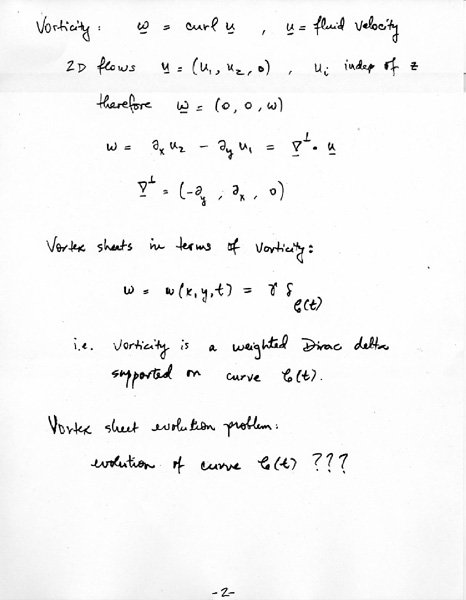 Vorticity: ω = curl u , u = fluid velocity
2D flows u = (u₁, u₂, 0) , uᵢ indep of z
therefore ω = (0, 0, ω)
ω = ∂ₓu₂ - ∂ᵧu₁ = ∇⊥ · u
∇⊥ = (-∂ᵧ , ∂ₓ , 0)
Vortex sheets in terms of vorticity:
ω = ω(x,y,t) = γ δ_C(t)
i.e. vorticity is a weighted Dirac delta
supported on curve C(t).
Vortex sheet evolution problem:
evolution of curve C(t) ???
-2-